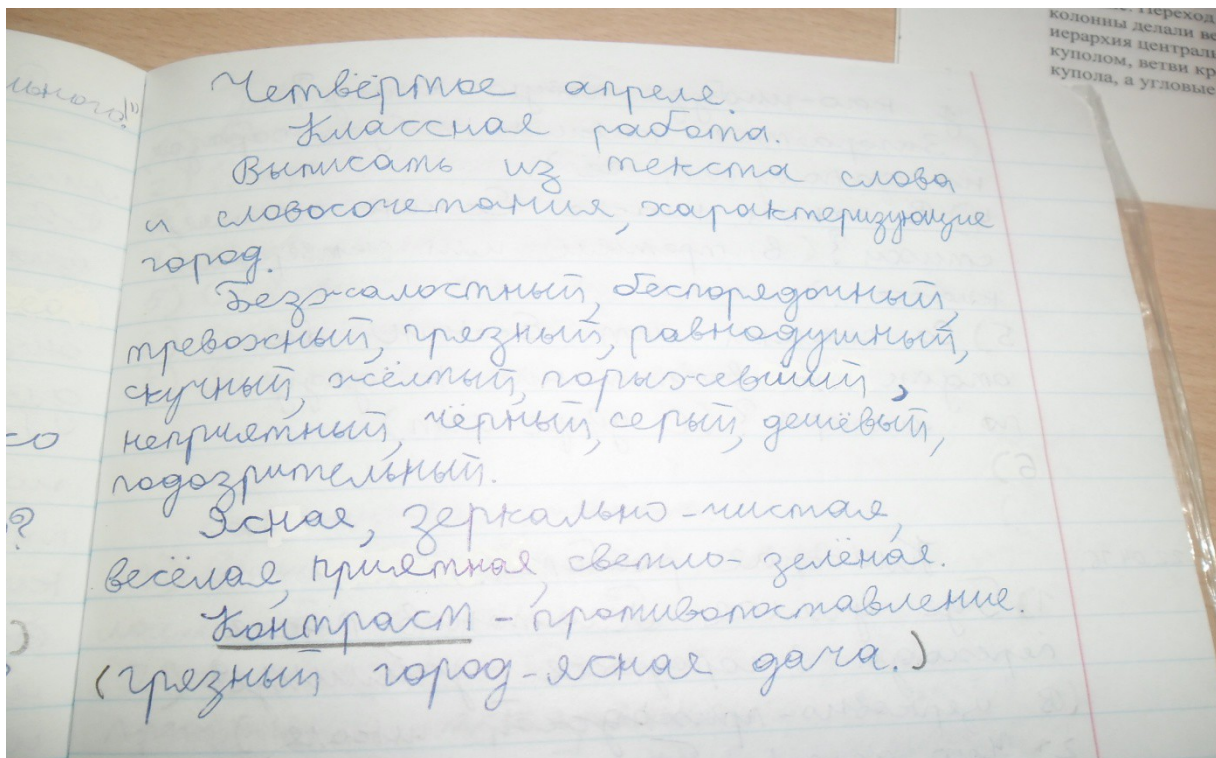 Четвёртое апреля.
Классная работа.
Выписать из текста слова
и словосочетания, характеризующие
город.
Безжалостный, беспорядочный,
тревожный, грязный, равнодушный,
скучный, жёлтый, порыжевший,
неприятный, чёрный, серый, дешёвый,
подозрительный.
Ясная, зеркально-чистая,
весёлая, приятная, светло-зелёная.
Контраст - противопоставление.
(грязный город-ясная дача.)
льного!
со
?
)
Переход
колонны делали ве
иерархия централь
куполом, ветви кр
купола, а угловые
5)
6)